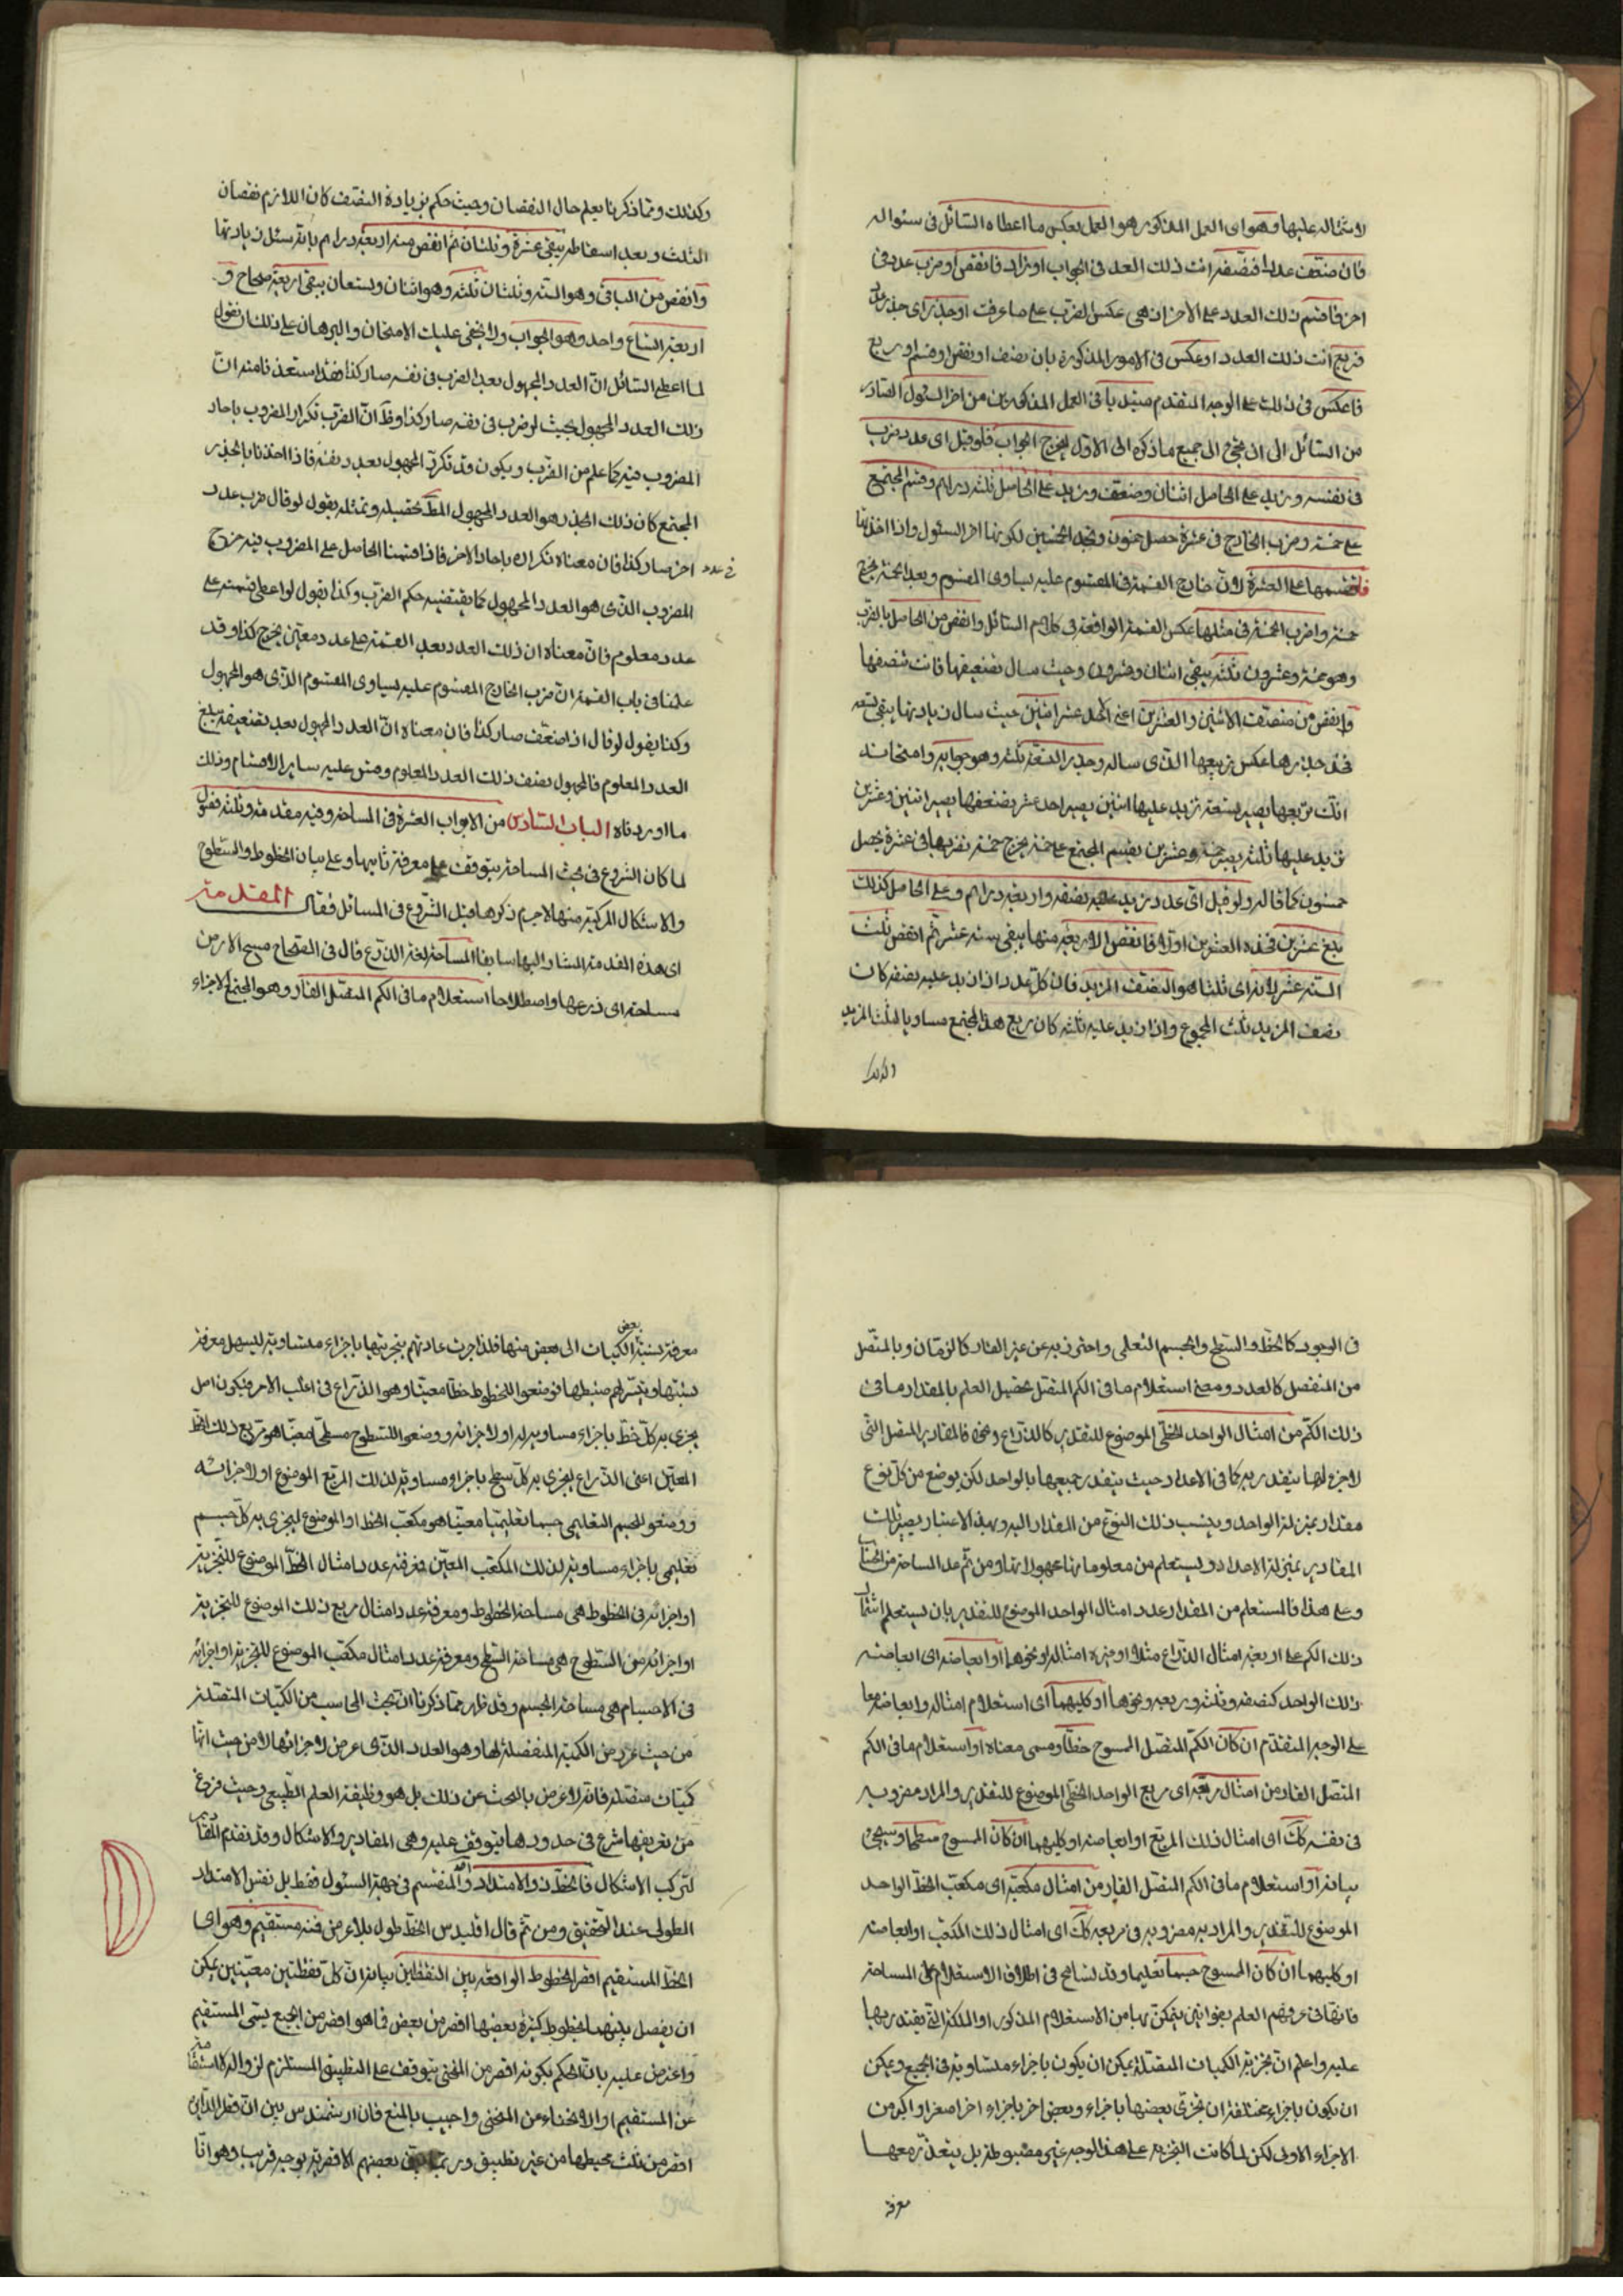 لاشتماله عليها وهو اى العمل المذكور هو العمل بعكس ما اعطاه السائل فى سئواله
فان ضعّف عددا فنصّفه انت ذلك العدد فى الجواب او زاد فانقص او ضرب عدد فى
اخر فاقسم ذلك العدد على الاخر اذ هى عكس الضرب على ما عرفت او جذر اى جذر عددا
فربع انت ذلك العدد او عكس فى الامور المذكورة بان نصف او نقص او قسم او ربع
فاعكس فى ذلك على الوجه المتقدم مبتديا فى العمل المذكور من اخر السئول الصادر
من السائل الى ان ينتهى الى جميع ما ذكره الى الاول ليخرج الجواب فلو قيل اى عدد ضرب
فى نفسه وزيد على الحاصل اثنان وضعّف وزيد على الحاصل ثلثه دراهم وقسم المجتمع
على خمسة وضرب الخارج فى عشرة حصل خمسون فخذ الخمسين لكونها اخر السئول واذا اخذتها
فاقسمها على العشرة لان خارج القسمة فى المقسوم عليه يساوى المقسوم وبعد القسمة يخرج
خمسة واضرب الخمسة فى مثلها عكس القسمة الواقعة فى كلام السائل وانقص من الحاصل بالضرب
وهو خمسة وعشرون ثلثه يبقى اثنان وعشرون وحيث سال تضعيفها فانت تنصفها
وانقص من منصّف الاثنين والعشرين اعنى الاحد عشر اثنين حيث سال زيادتها يبقى تسعة
فخذ جذرها عكس تربيعها الذى ساله وجذر التسعة ثلثه وهو جوابه وامتحانه
انك تربعها يصير تسعة تزيد عليها اثنين يصير احد عشر تضعفها يصير اثنين وعشرين
تزيد عليها ثلثه يصير خمسة وعشرين تقسم المجتمع على خمسة يخرج خمسة تضربها فى عشرة يحصل
خمسون كما قاله ولو قيل اى عدد زيد عليه نصفه واربعة دراهم وعلى الحاصل كذلك
بلغ عشرين فخذ العشرين اولا فانقص الاربعة منها يبقى ستة عشر ثم انقص ثلث
الستة عشر لانه اى ثلثها هو النصف المزيد فان كل عدد اذا زيد عليه نصفه كان
نصف المزيد ثلث المجموع واذا زيد عليه ثلثه كان ربع هذا المجتمع مساويا لثلث المزيد
وكذلك ومما ذكرنا يعلم حال النقصان وحيث حكم بزيادة النصف كان اللازم نقصان
الثلث وبعد اسقاطه يبقى عشرة وثلثان ثم انقص منه اربعة دراهم بانه سئل زيادتها
وانقص من الباقى وهو الستة وثلثان ثلثه وهو اثنان وتسعان يبقى اربعة صحاح و
اربعة اتساع واحد وهو الجواب ولا يخفى عليك الامتحان والبرهان على ذلك ان نقول
لما اعطى السائل ان العدد المجهول بعد الضرب فى نفسه صار كذا فقد استفدنا منه ان
ذلك العدد المجهول بحيث لو ضرب فى نفسه صار كذا وظ ان الضرب تكرار المضروب باحاد
المضروب فيه كما علم من الضرب ويكون قد تكرر المجهول بعدد نفسه فاذا اخذنا بالجذر
المجتمع كان ذلك الجذر هو العدد المجهول المط تحصيله وبمثله يقول لو قال ضرب عدد
فى عدد
اخر صار كذا فان معناه تكراره باحاد الاخر فاذا قسمنا الحاصل على المضروب فيه خرج
المضروب الذى هو العدد المجهول كما يقتضيه حكم الضرب وكذا يقول لو اعطى قسمته على
عدد معلوم فان معناه ان ذلك العدد بعد القسمة على عدد معين يخرج كذا وقد
علمنا فى باب القسمة ان ضرب الخارج المقسوم عليه يساوى المقسوم الذى هو المجهول
وكذا يقول لو قال اذا ضعّف صار كذا فان معناه ان العدد المجهول بعد تضعيفه يبلغ
العدد المعلوم فالمجهول نصف ذلك العدد المعلوم وقس عليه ساير الاقسام وذلك
ما اوردناه الباب السادس من الابواب العشرة فى المساحة وفيه مقدمة وثلثة فصول
لما كان الشروع فى بحث المساحة يتوقف على معرفة ثانيها وعلى بيان الخطوط والسطوح
والاشكال المركبة منها لاجرم ذكرها قبل الشروع فى المسائل فقال المقدمة
اى هذه المقدمة المشار اليها سابقا المساحة لغة الذرع قال فى الصحاح مسح الارض
مساحة اى ذرعها واصطلاحا استعلام ما فى الكم المتصل القار وهو المجتمع الاجزاء
فى الوجود كالخط والسطح والجسم التعلمى واحترز به عن غير القار كالزمان وبالمتصل
من المنفصل كالعدد ومعنى استعلام ما فى الكم المتصل تحصيل العلم بالمقدار ما فى
ذلك الكم من امثال الواحد الخطى الموضوع للتقدير كالذراع ونحوه فالمقادير المتصل التى
لا جزء لها يتقدر به كما فى الاعداد حيث يتقدر جميعها بالواحد لكن يوضع من كل نوع
مقدار بمنزلة الواحد وينسب ذلك النوع من المقدار اليه وبهذا الاعتبار يصير تلك
المقادير بمنزلة الاعداد ويستعلم من معلوماتها مجهولاتها ومن ثم عد المساحة من الحساب
وعلى هذا فالمستعلم من المقدار عدد امثال الواحد الموضوع للتقدير بان يستعلم اشتمال
ذلك الكم على اربعة امثال الذراع مثلا او عشرة امثاله او نحوهما او ابعاضه اى ابعاضه
ذلك الواحد كنصفه وثلثه وربعه ونحوها او كليهما اى استعلام امثاله وابعاضه معا
على الوجه المتقدم ان كان الكم المتصل الممسوح خطا ومسمى معناه او استعلام ما فى الكم
المتصل القار من امثال مربعه اى ربع الواحد الخطى الموضوع للتقدير والمراد مضروبه
فى نفسه كك اى امثال ذلك المربع او ابعاضه او كليهما ان كان الممسوح سطحا وسيجئ
بيانه او استعلام ما فى الكم المتصل القار من امثال مكعبه اى مكعب الخط الواحد
الموضوع للتقدير والمراد به مضروبه فى مربعه كك اى امثال ذلك المكعب او ابعاضه
او كليهما ان كان الممسوح جسما تعليما وقد تسامح فى اطلاق الاستعلام على المساحة
فانها فى عرفهم العلم بقوانين يتمكن بها من الاستعلام المذكور او الملكة التى يقتدر بها
عليه واعلم ان تجزية الكميات المتصلة يمكن ان يكون باجزاء متساوية فى الجميع ويمكن
ان يكون باجزاء مختلفة ان تجزى بعضها باجزاء وبعض اخر باجزاء اخر اصغر او اكبر من
الاجزاء الاولى لكن لما كانت التجزيه على هذا الوجه غير مضبوطة بل يتعذر معها
معرفة
معرفة نسبة بعض الكميات الى بعض منها فلذا جرت عادتهم بتجزيتها باجزاء متساوية ليسهل معرفة
نسبتها ويتيسر لهم ضبطها فوضعوا للخطوط خطا معينا وهو الذراع فى اغلب الامر فيكون اصل
يجزى به كل خط باجزاء مساوية له او لاجزائه ووضعوا للسطوح سطحا معينا هو تربيع ذلك الخط
المعين اعنى الذراع ليجزى به كل سطح باجزاء مساوية لذلك المربع الموضوع او لاجزائه
ووضعوا للجسم التعليمى جسما تعليميا معينا هو مكعب الخط او الموضوع ليجزى به كل جسم
تعليمى باجزاء مساوية لذلك المكعب المعين فمعرفة عدد امثال الخط الموضوع للتجزية
او اجزائه فى الخطوط هى مساحة الخطوط ومعرفة عدد امثال مربع ذلك الموضوع للتجزية
او اجزائه من السطوح هى مساحة السطح ومعرفة عدد امثال مكعب الموضوع للتجزية او اجزائه
فى الاجسام هى مساحة الجسم وقد ظهر مما ذكرنا ان بحث المحاسب من الكميات المتصلة
من حيث عروض الكمية المنفصلة لها وهو العدد الذى عرض لاجزائها لا من حيث انها
كميات متصلة فانه لا غرض بالبحث عن ذلك بل هو وظيفة العلم الطبيعى وحيث فرغ
من تعريفها شرع فى حدود ما يتوقف عليه وهى المقادير والاشكال وقد تقدم المقادير
لتركب الاشكال فالخط ذو الامتداد والمنقسم فى جهة السئول فقط بل نفس الامتداد
الطولى عند التحقيق ومن ثم قال اقليدس الخط طول بلا عرض فمنه مستقيم وهو اى
الخط المستقيم اقصر الخطوط الواقعة بين النقطتين بيانه ان كل نقطتين معينتين يمكن
ان يفصل بينهما خطوط كثيرة بعضها اقصر من بعض فما هو اقصر من الجميع يسمى المستقيم
واعترض عليه بان الحكم بكونه اقصر من المنحنى يتوقف على التطبيق المستلزم لزوال الاستقامة
عن المستقيم او الانحناء من المنحنى واجيب بالمنع فان ارشميدس بين ان قطر الدائرة
اقصر من ثلث محيطها من غير تطبيق وربما بعضهم الاقصرية بوجه قريب وهو انا